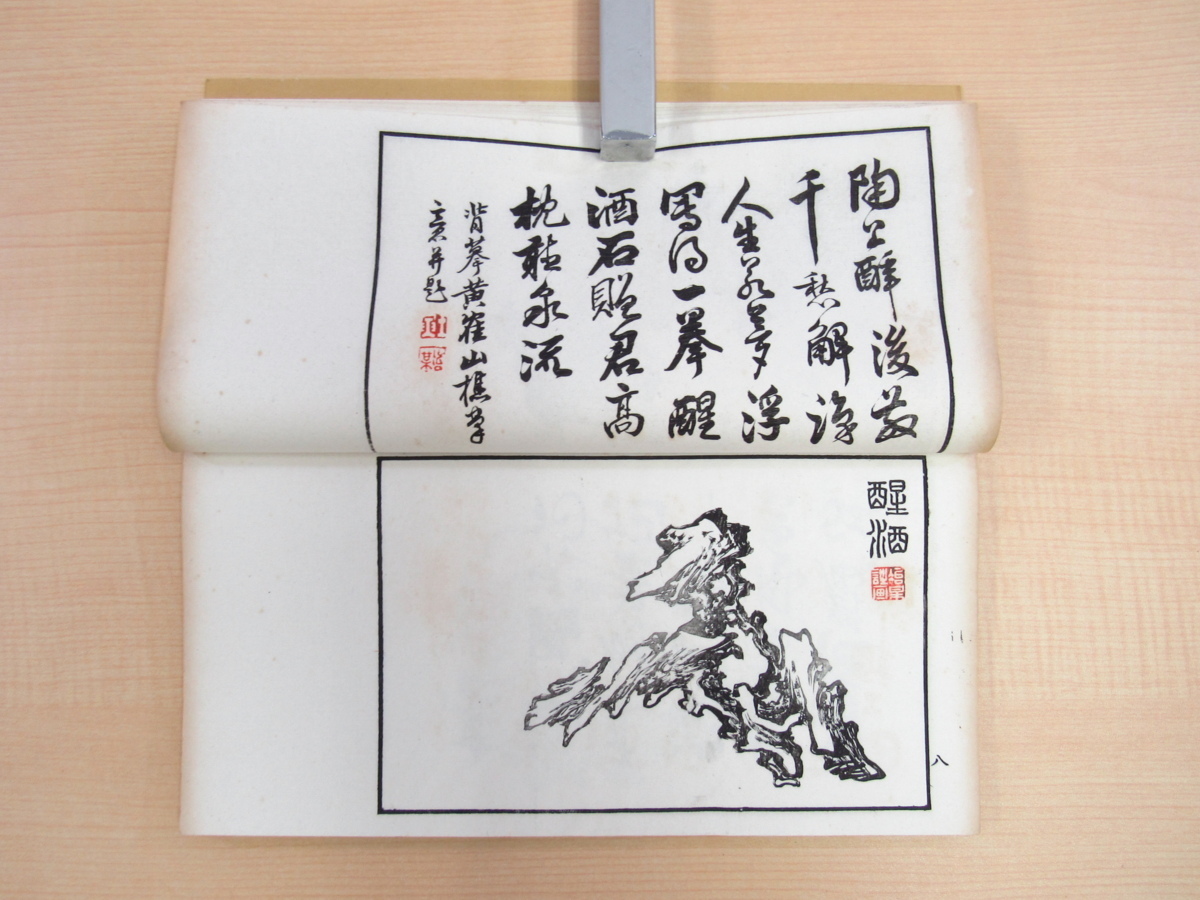 陶公醉後散
千愁解
人生若夢浮
寫得一拳醒
酒石贈君高
枕聽泉流
背摹黃寉山樵筆
意并題
醒酒
八